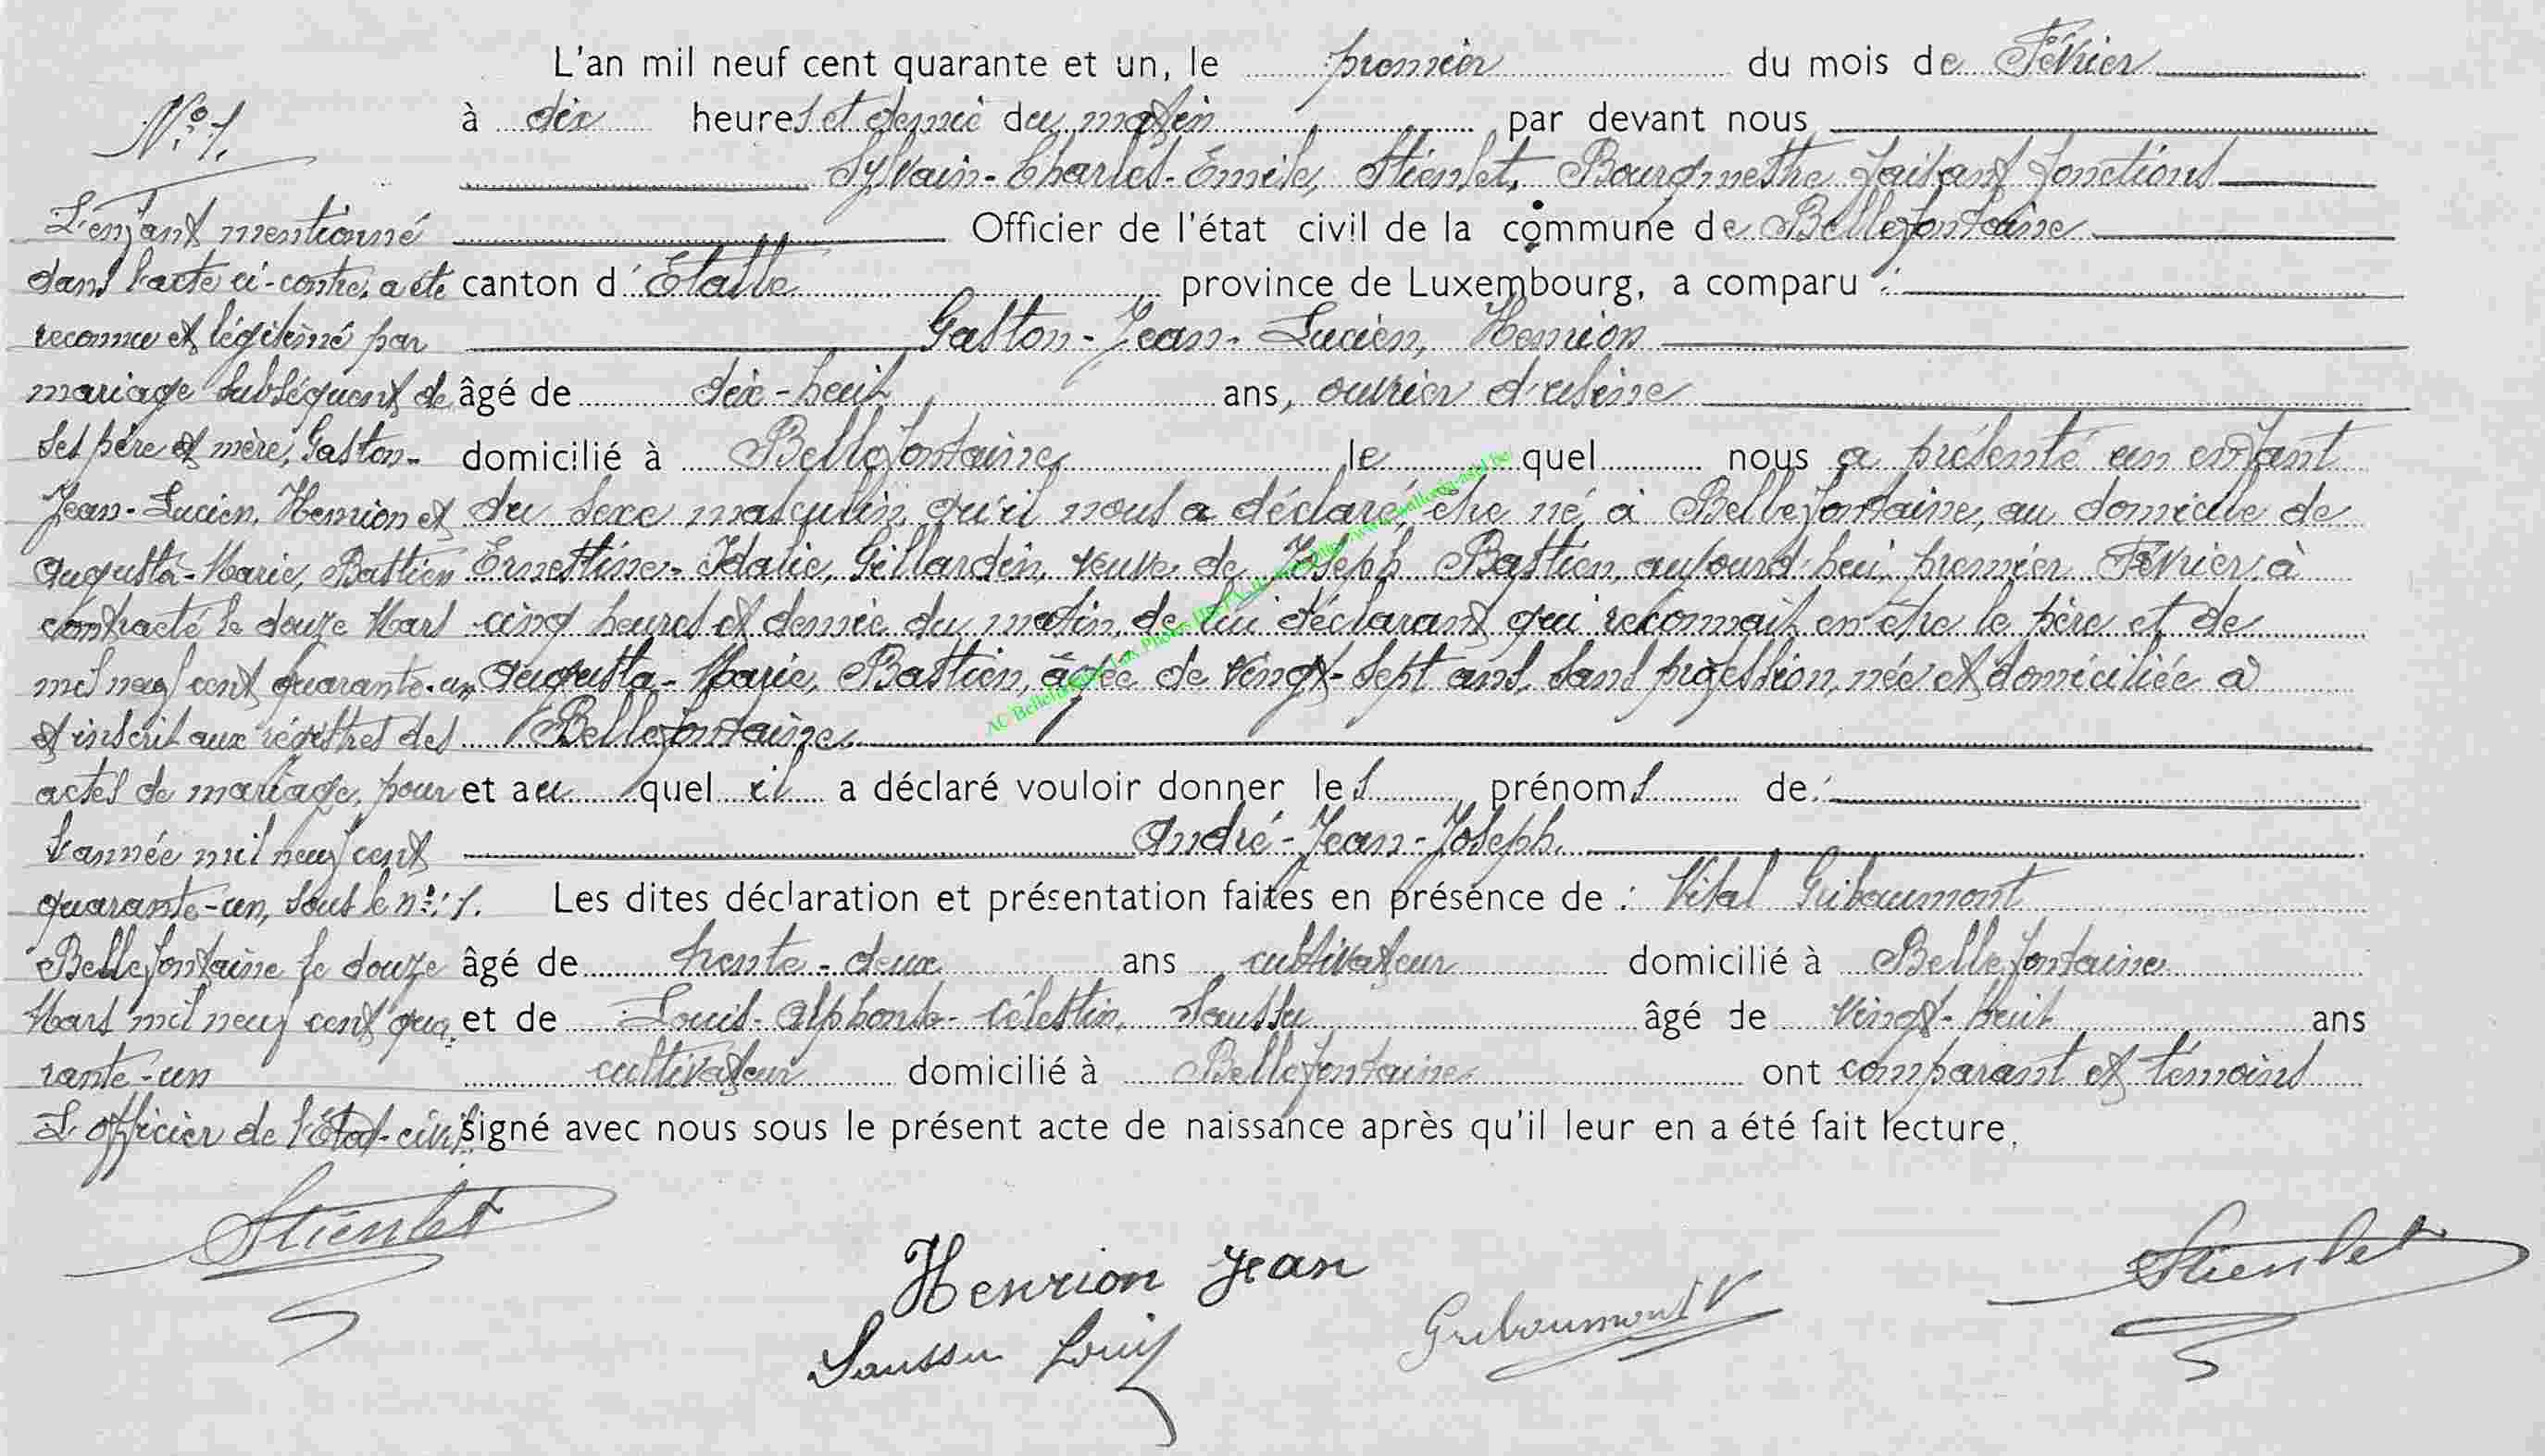 L'an mil neuf cent quarante et un, le premier du mois de Février
à dix heures et demie du matin par devant nous
Sylvain-Charles-Emile, Stienlet, Bourgmestre faisant fonctions
Officier de l'état civil de la commune de Bellefontaine
canton d'Etalle province de Luxembourg, a comparu :
Gaston-Jean-Lucien, Henrion
âgé de dix-huit ans, ouvrier d'usine
domicilié à Bellefontaine lequel nous a présenté un enfant
du sexe masculin, qu'il nous a déclaré, être né, à Bellefontaine, au domicile de
Ernestine-Idalie, Gillardin, veuve de Joseph Bastien, aujourd'hui, premier Février, à
cinq heures et demie du matin, de lui déclarant qui reconnait en être le père et de
Augusta-Marie, Bastien, âgée de vingt-sept ans, sans profession, née et domiciliée à
Bellefontaine.
et auquel il a déclaré vouloir donner les prénoms de :
André-Jean-Joseph.
Les dites déclaration et présentation faites en présence de : Vital Gribaumont
âgé de trente-deux ans cultivateur domicilié à Bellefontaine
et de Louis-Alphonse-Célestin, Saussu âgé de vingt-huit ans
cultivateur domicilié à Bellefontaine ont comparant et témoins
signé avec nous sous le présent acte de naissance après qu'il leur en a été fait lecture.
N°: 1.
L'enfant mentionné
dans l'acte ci-contre, a été
reconnu et légitimé par
mariage subséquent de
ses père et mère, Gaston-
Jean-Lucien, Henrion et
Augusta-Marie, Bastien
contracté le douze Mars
mil neuf cent quarante-un
et inscrit aux régistres des
actes de mariage, pour
l'année mil neuf cent
quarante-un, sous le n°: 1.
Bellefontaine le douze
Mars mil neuf cent qua-
rante-un
L'officier de l'Etat-civil.
Stienlet
Henrion Jean
Saussu Louis
Gribaumont V
Stienlet